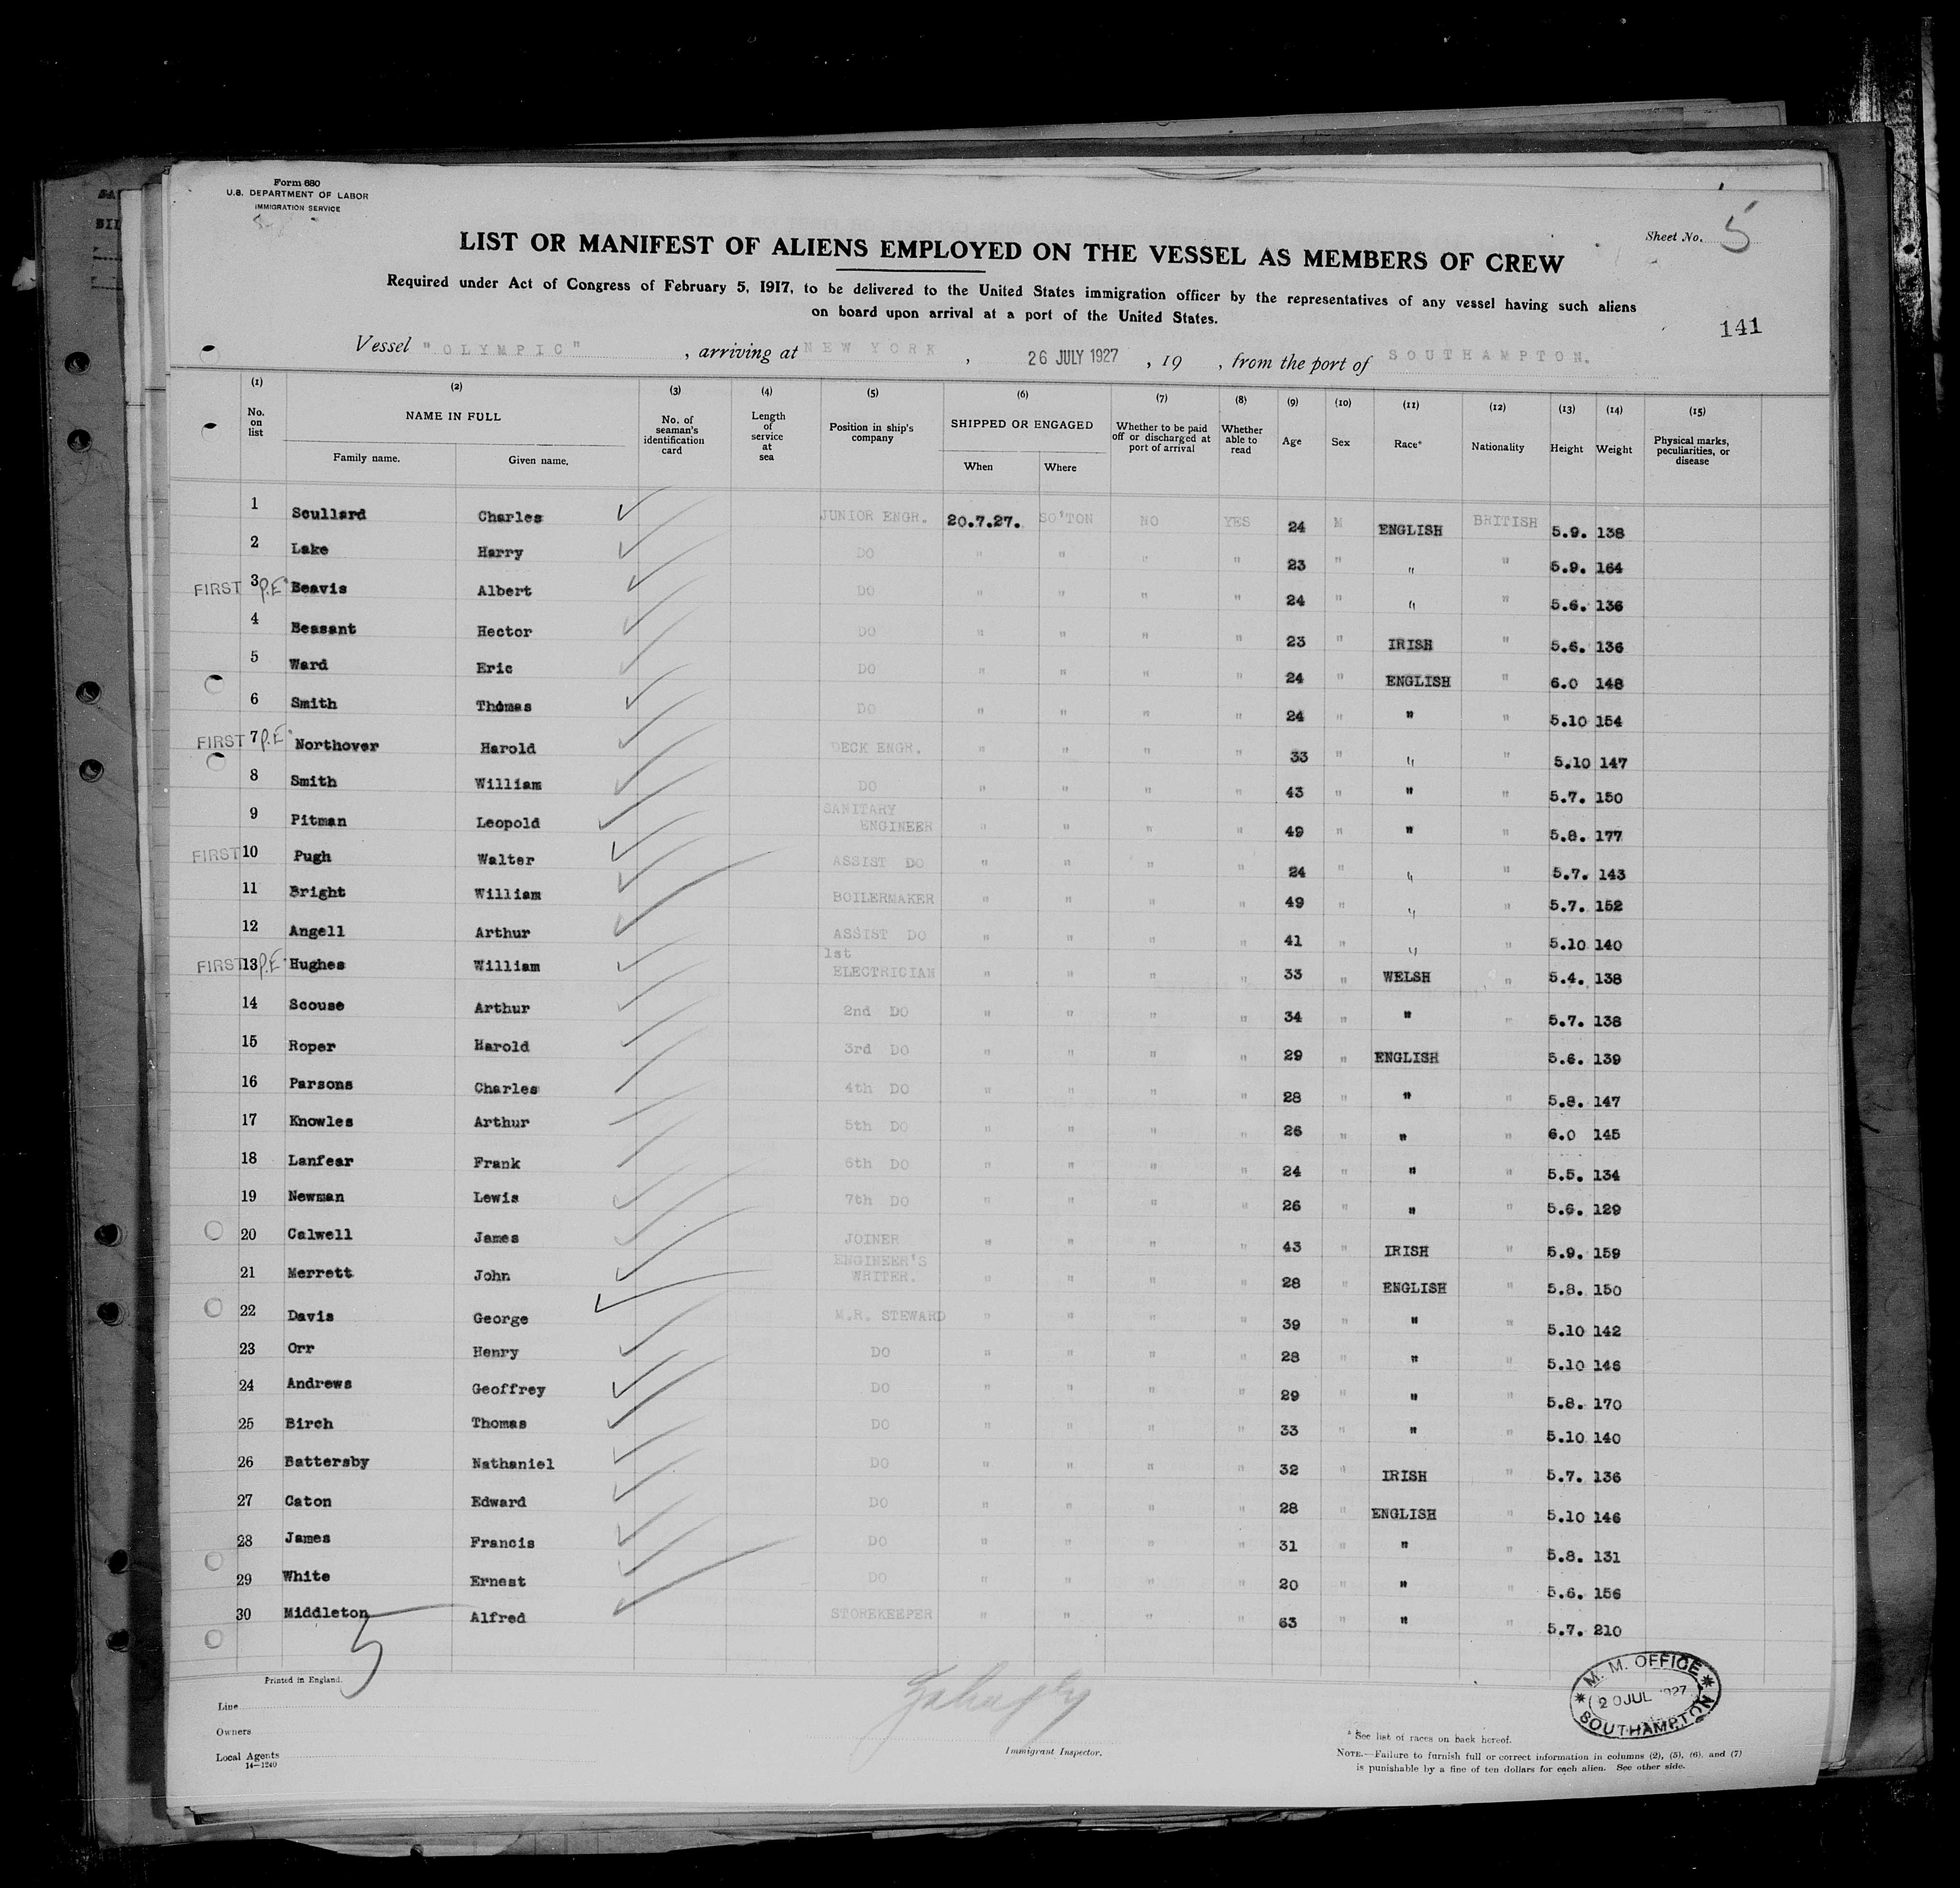 Form 680
U.S. DEPARTMENT OF LABOR
IMMIGRATION SERVICE
Sheet No. 5
LIST OR MANIFEST OF ALIENS EMPLOYED ON THE VESSEL AS MEMBERS OF CREW
Required under Act of Congress of February 5, 1917, to be delivered to the United States immigration officer by the representatives of any vessel having such aliens
on board upon arrival at a port of the United States.
141
Vessel "OLYMPIC", arriving at NEW YORK, 26 JULY 1927, 19 , from the port of SOUTHAMPTON.
(1) (2) (3) (4) (5) (6) (7) (8) (9) (10) (11) (12) (13) (14) (15)
No. on list NAME IN FULL Family name. Given name. No. of seaman's identification card Length of service at sea Position in ship's company SHIPPED OR ENGAGED When Where Whether to be paid off or discharged at port of arrival Whether able to read Age Sex Race* Nationality Height Weight Physical marks, peculiarities, or disease
1 Scullard Charles JUNIOR ENGR. 20.7.27. SO'TON NO YES 24 M ENGLISH BRITISH 5.9. 138
2 Lake Harry DO " " " " 23 " " " 5.9. 164
FIRST 3 P.E. Beavis Albert DO " " " " 24 " " " 5.6. 136
4 Beasant Hector DO " " " " 23 " IRISH " 5.6. 136
5 Ward Eric DO " " " " 24 " ENGLISH " 6.0 148
6 Smith Thomas DO " " " " 24 " " " 5.10 154
FIRST 7 P.E. Northover Harold DECK ENGR. " " " " 33 " " " 5.10 147
8 Smith William DO " " " " 43 " " " 5.7. 150
9 Pitman Leopold SANITARY ENGINEER " " " " 49 " " " 5.8. 177
FIRST 10 Pugh Walter ASSIST DO " " " " 24 " " " 5.7. 143
11 Bright William BOILERMAKER " " " " 49 " " " 5.7. 152
12 Angell Arthur ASSIST DO " " " " 41 " " " 5.10 140
FIRST 13 P.E. Hughes William 1st ELECTRICIAN " " " " 33 " WELSH " 5.4. 138
14 Scouse Arthur 2nd DO " " " " 34 " " " 5.7. 138
15 Roper Harold 3rd DO " " " " 29 " ENGLISH " 5.6. 139
16 Parsons Charles 4th DO " " " " 28 " " " 5.8. 147
17 Knowles Arthur 5th DO " " " " 26 " " " 6.0 145
18 Lanfear Frank 6th DO " " " " 24 " " " 5.5. 134
19 Newman Lewis 7th DO " " " " 26 " " " 5.6. 129
20 Calwell James JOINER " " " " 43 " IRISH " 5.9. 159
21 Merrett John ENGINEER'S WRITER. " " " " 28 " ENGLISH " 5.8. 150
22 Davis George M.R. STEWARD " " " " 39 " " " 5.10 142
23 Orr Henry DO " " " " 28 " " " 5.10 146
24 Andrews Geoffrey DO " " " " 29 " " " 5.8. 170
25 Birch Thomas DO " " " " 33 " " " 5.10 140
26 Battersby Nathaniel DO " " " " 32 " IRISH " 5.7. 136
27 Caton Edward DO " " " " 28 " ENGLISH " 5.10 146
28 James Francis DO " " " " 31 " " " 5.8. 131
29 White Ernest DO " " " " 20 " " " 5.6. 156
30 Middleton Alfred STOREKEEPER " " " " 63 " " " 5.7. 210
5
Printed in England.
Line
Owners
Local Agents
14—1240
Immigrant Inspector.
M. M. OFFICE
20 JUL 1927
SOUTHAMPTON
* See list of races on back hereof.
NOTE.—Failure to furnish full or correct information in columns (2), (5), (6), and (7)
is punishable by a fine of ten dollars for each alien. See other side.